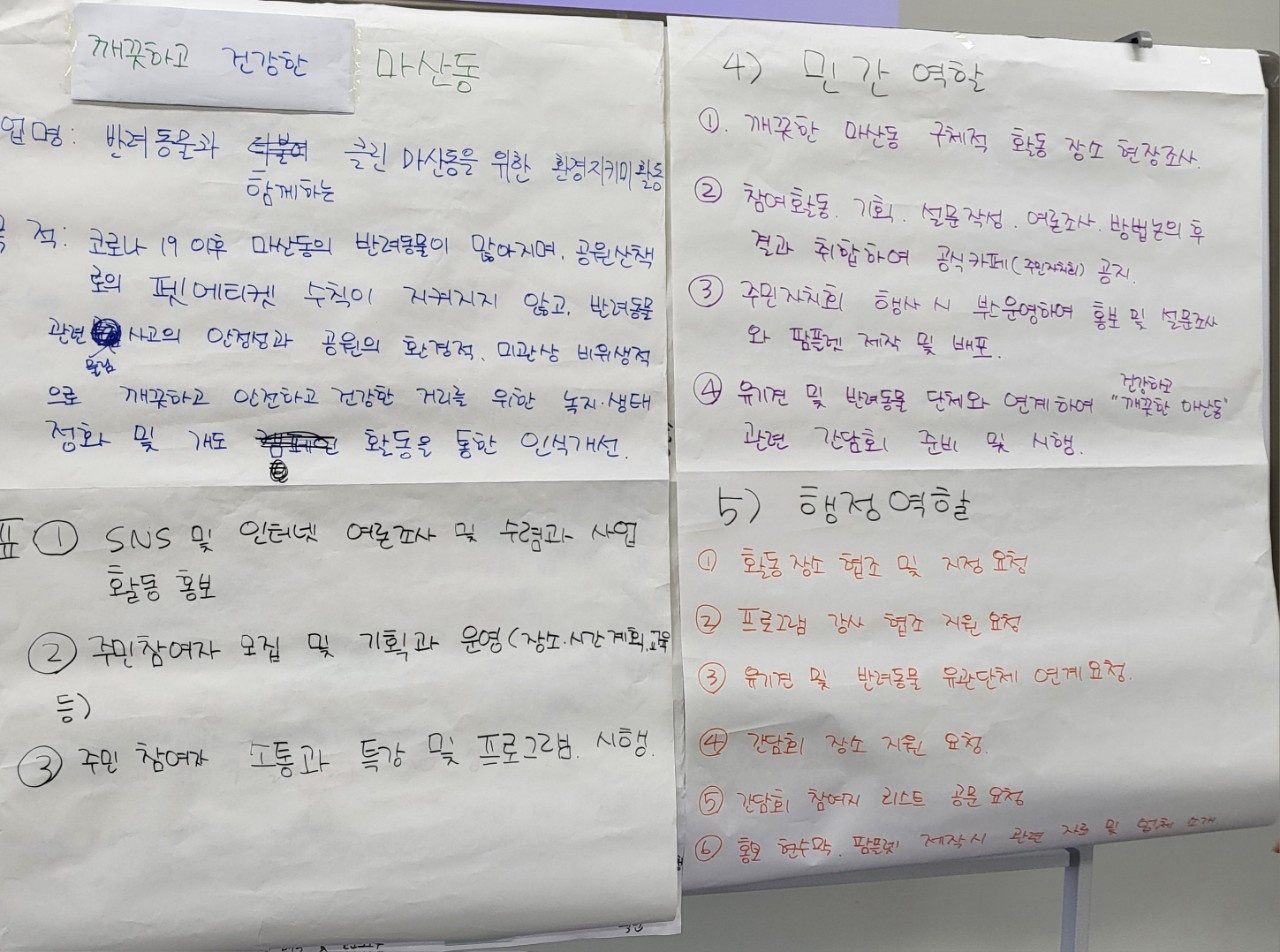 깨끗하고 건강한 마산동
업명: 반려동물과 더불어 클린 마산동을 위한 환경지키미 활동
함께하는
적: 코로나 19 이후 마산동의 반려동물이 많아지며, 공원산책
로의 펫에티켓 수칙이 지켜지지 않고, 반려동물
관련 사고의 안전성과 공원의 환경적, 미관상 비위생적
물림
으로 깨끗하고 안전하고 건강한 거리를 위한 녹지·생태
정화 및 개도 캠페인 활동을 통한 인식개선.
표 ① SNS 및 인터넷 여론조사 및 수렴과 사업
활동 홍보
② 주민참여자 모집 및 기획과 운영(장소·시간계획,교육
등)
③ 주민 참여자 소통과 특강 및 프로그램 시행.
4) 민간역할
①. 깨끗한 마산동 구체적 활동 장소 현장조사.
② 참여활동. 기획. 설문작성. 여론조사. 방법논의 후
결과 취합하여 공식카페(주민자치회) 공지.
③ 주민자치회 행사 시 부스운영하여 홍보 및 설문조사
와 팜플렛 제작 및 배포.
건강하고
④ 유기견 및 반려동물 단체와 연계하여 "깨끗한 마산동"
관련 간담회 준비 및 시행.
5) 행정역할
① 활동장소 협조 및 지정 요청
② 프로그램 강사 협조 지원 요청
③ 유기견 및 반려동물 유관단체 연계요청.
④ 간담회 장소 지원 요청.
⑤ 간담회 참여자 리스트 공문 요청
⑥ 홍보 현수막. 팜플렛 제작시 관련 자료 및 업체 소개